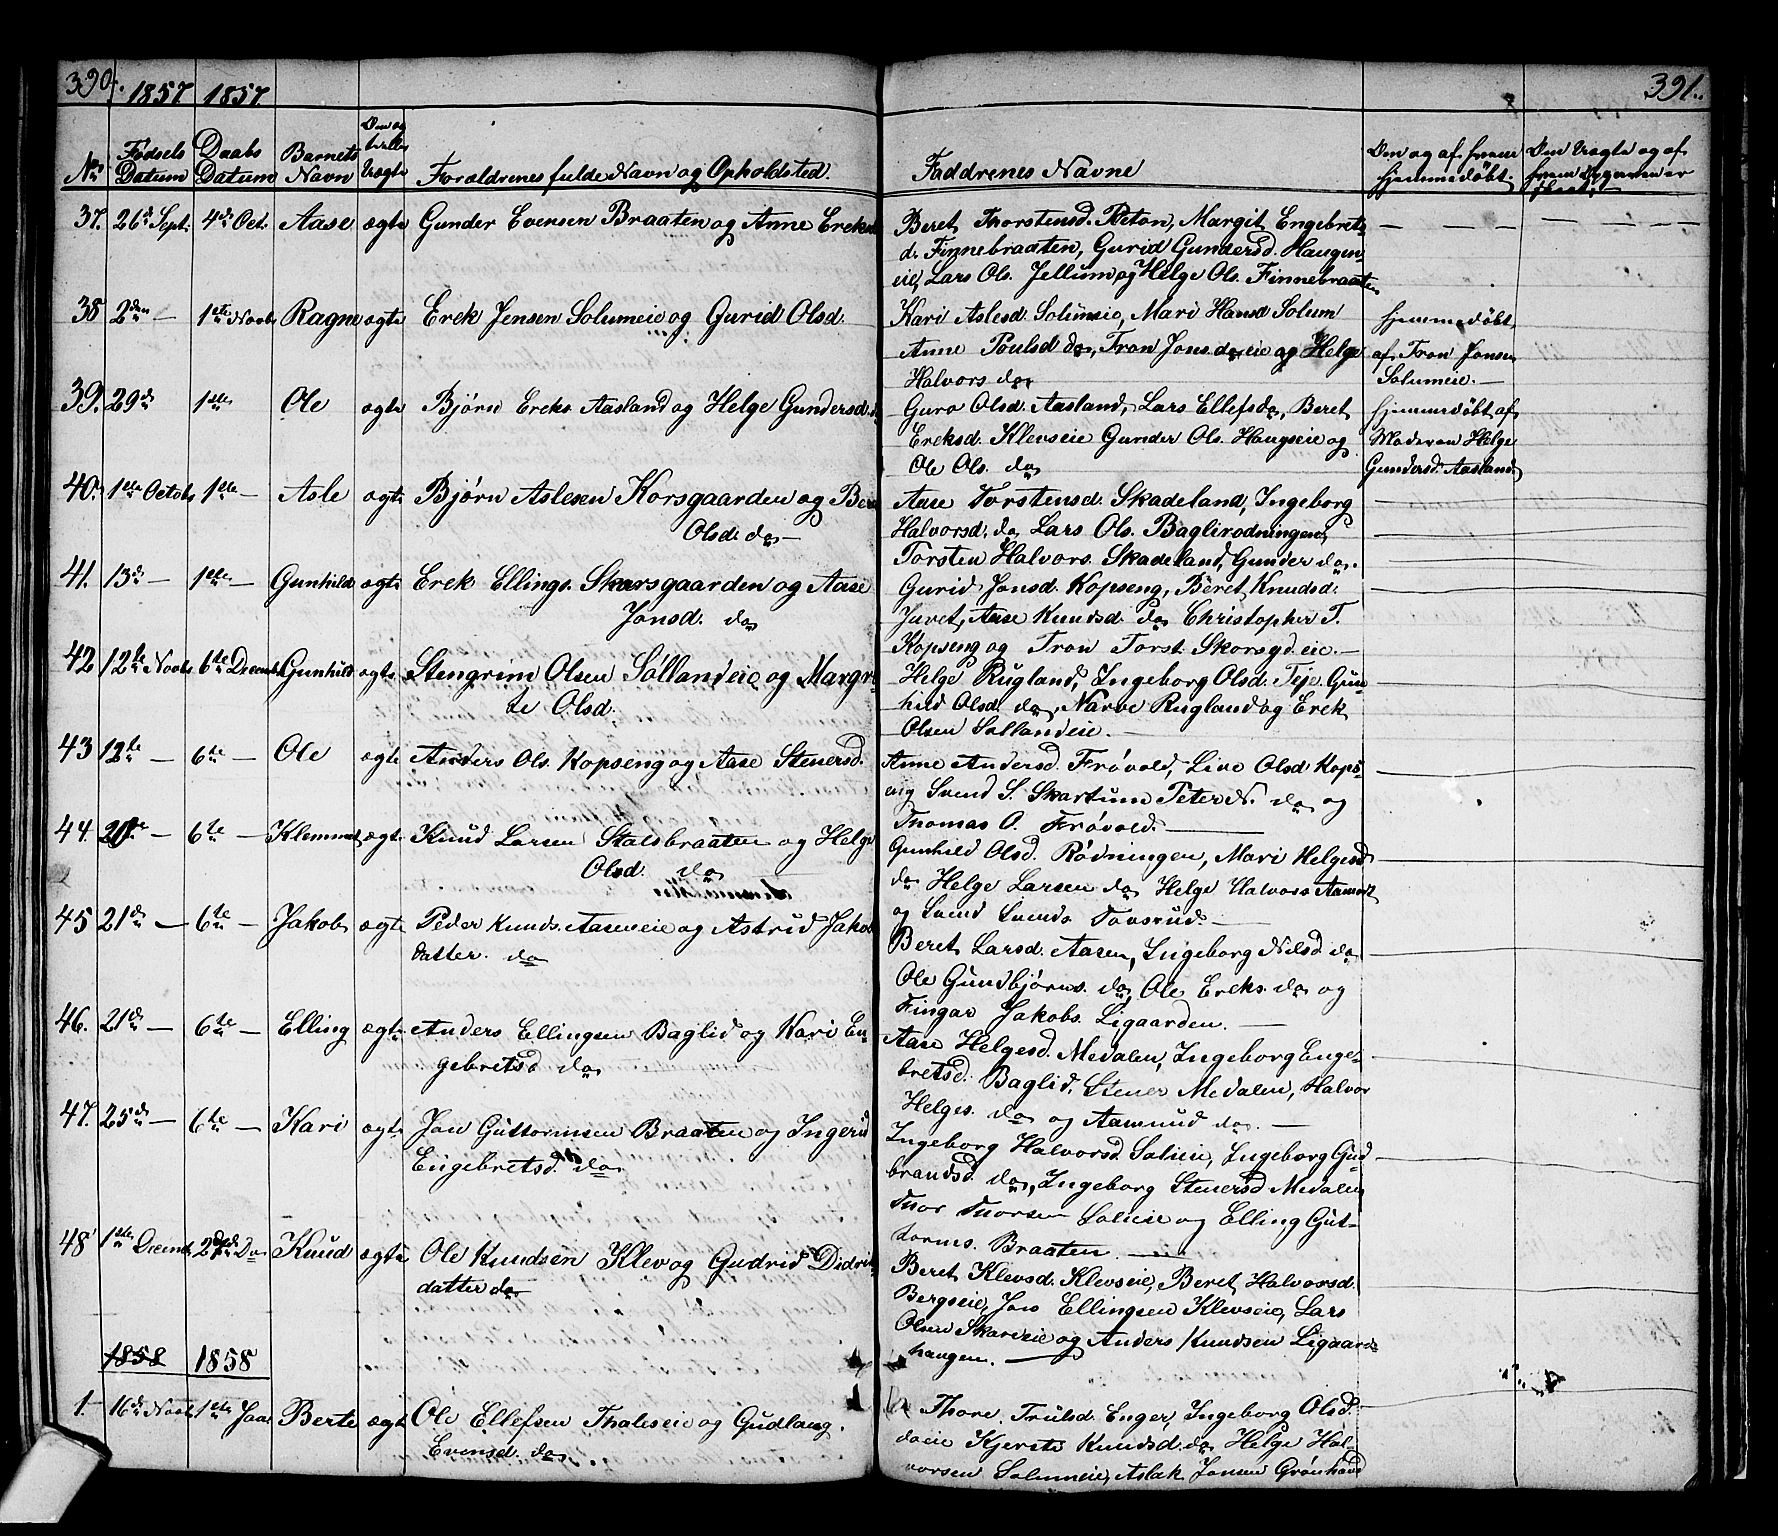 390. 1857 1857
No Fødsels Datum Daabs Datum Barnets Navn Om ægte heller Uægte Forældrenes fulde Navn og Opholdsted.
37. 26de Sept. 4de Oct. Aase ægte Gunder Evensen Braaten og Anne Ereksd
38 2den — 1ste Novbr Ragne ægte Erek Jensen Solumeie og Gurid Olsd.
39. 29de 1ste Ole ægte Bjørn Ereks. Aasland og Helge Gundersd.
40. 1ste Octob. 1ste — Asle ægte Bjørn Aslesen Korsgaarden og
Olsd. do —
41. 13de — 1ste — Gunhild ægte Erek Ellings. Skarsgaarden og Aase
Jonsd. do
42 12te Novbr 6te Decemb. Gunhild ægte Stengrim Olsen Søllandeie og Margre-
te Olsd.
43 12te — 6te — Ole ægte Anders Ols. Kopseng og Aase Stenersd.
44. 20de — 6te — Klemmet ægte Knud Larsen Stalsbraaten og Helge
Olsd. do
45 21de — 6te — Jakob ægte Peder Knuds. Aaseneie og Astrid Jakob
datter. do
46. 21de — 6te — Elling ægte Anders Ellingsen Baglid og Kari En-
gebretsd do
47. 25de — 6te — Kari ægte Jon Guttormsen Braaten og Ingerid
Engebretsd. do
48 1ste Decemb. Do Knud ægte Ole Knudsen Klev og Gudrid Didrik
datter do
1858 1858
1. — 16de Novbr 1ste Jan Berte ægte Ole Ellefsen Thaleseie og Gudlaug.
Evensd. do.
391.
Faddrenes Navne Om og af hvem hjemmedøbt. Om Uægte og af hvem
Beret Thorstensd. Pleton, Margit Engebrets
d. Finnebraaten, Gurid Gundersd. Haugen
eie, Lars Ols. Jellum og Helge Ols. Finnebraaten
Kari Aslesd. Solumeie, Mari Hansd Solum hjemmedøbt
Anne Poulsd do, Tron Jons. do eie og Helge af Tron Jonsen
Halvors do Solumeie. —
Guro Olsd. Aasland, Lars Ellefs do, Beret hjemmedøbt af
Ereksd. Klevseie Gunder Ols. Haugseie og Moderen Helge
Ole Ols. do Gundersd. Aasland
Aase Torstensd. Skadeland, Ingeborg
Halvorsd. do Lars Ols. Baglirodningen
Torsten Halvors. Skadeland, Gunder do.
Gurid Jonsd. Kopseng, Beret Knudsd.
Juvet, Aase Knudsd. do Christopher T.
Kopseng og Tron Torst. Skorsgd.eie. —
Helge Rugland, Ingeborg Olsd. Teje. Gun-
hild Olsd. do, Narve Rugland og Erek
Olsen Sollandeie. —
Anne Andersd. Frøvold, Live Olsd Kops-
eng Svend S. Skartum Peter N. do og
Thomas O. Frøvold. —
Gunhild Olsd. Rødningen, Mari Helgesd
do Helge Larsen do Helge Halvors
og Svend Svends Tovsrud. —
Beret Larsd. Aasen, Ingeborg Nilsd do
Ole Gundbjørns. do, Ole Ereks. do og
Fingar Jakobs. Ligaarden. —
Aase Helgesd. Medalen, Ingeborg Enge-
bretsd. Baglid. Stener Medalen, Halvor
Helges. do og Aamund do. —
Ingeborg Halvorsd Solieie, Ingeborg Gud-
brandsd do, Ingeborg Stenersd Medalen
Thor Thorsen Solieie og Elling Gut-
torms. Braaten. —
Beret Klevsd. Klevseie, Beret Halvorsd.
Bergseie, Jon Ellingsen Klevseie, Lars
Olsen Skareeie og Anders Knudsen Ligaard-
haugen. —
Thore. Trulsd. Enger, Ingeborg Olsd.
do eie Kjersti Knudsd. do Helge Hal-
vorsen Solumeie, Aslak Jonsen Grønhovd